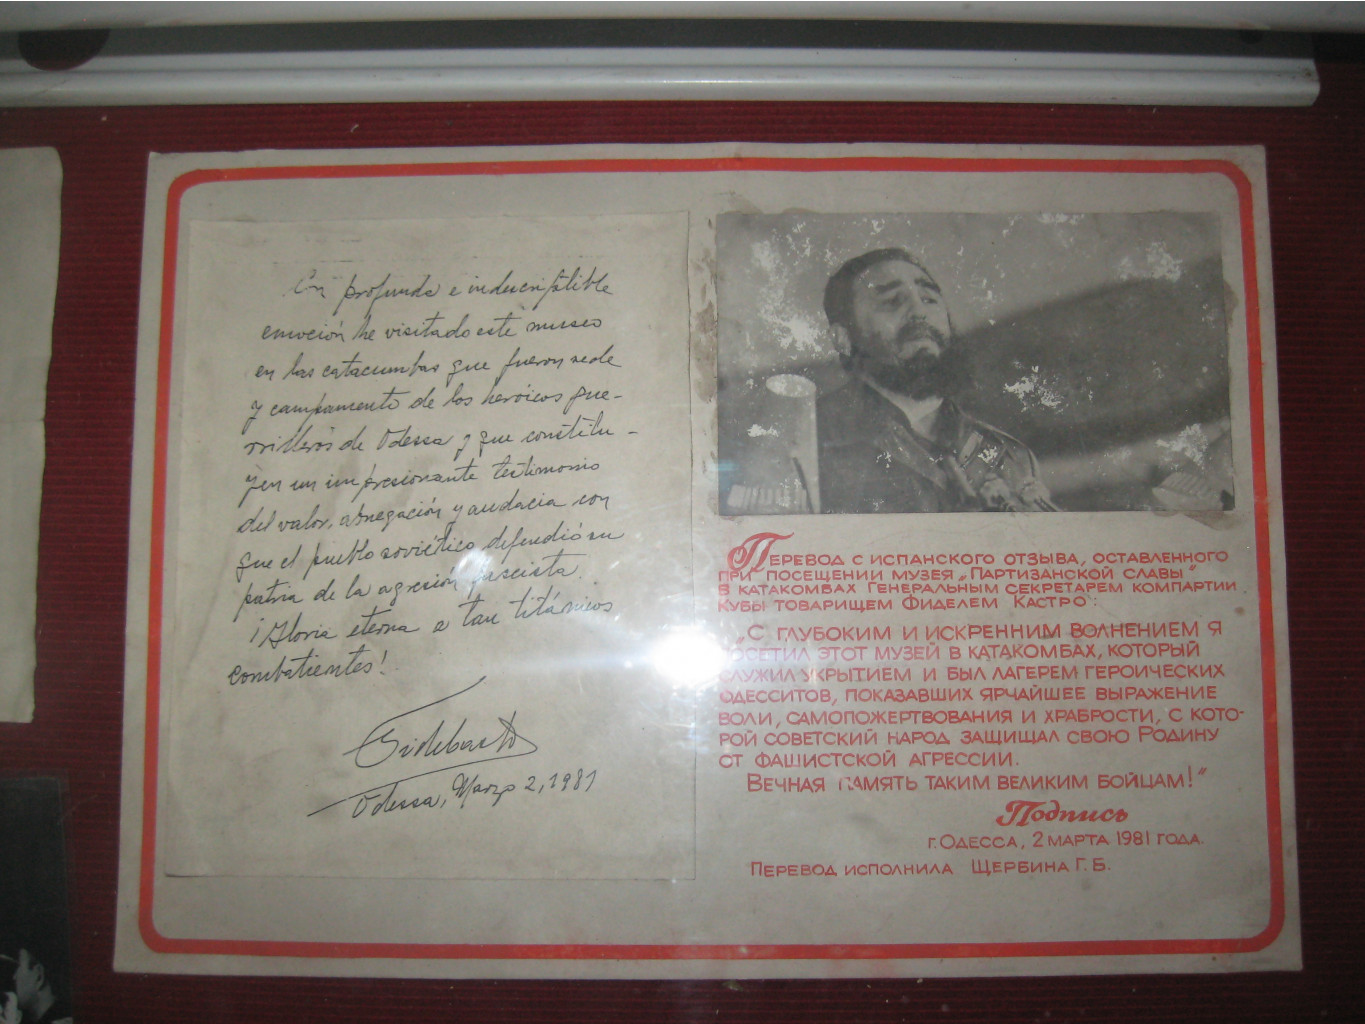 Con profunda e indescriptible
emoción he visitado este museo
en las catacumbas que fueron sede
y campamento de los heróicos gue-
rrilleros de Odessa y que constitu-
yen un impresionante testimonio
del valor, abnegación y audacia con
que el pueblo soviético defendió su
patria de la agresión fascista.
¡Gloria eterna a tan titánicos
combatientes!
Fidel Castro
Odessa, Marzo 2, 1981
Перевод с испанского отзыва, оставленного
при посещении музея „Партизанской славы"
в катакомбах Генеральным секретарем компартии
Кубы товарищем Фиделем Кастро:
„С глубоким и искренним волнением я
посетил этот музей в катакомбах, который
служил укрытием и был лагерем героических
одесситов, показавших ярчайшее выражение
воли, самопожертвования и храбрости, с кото-
рой советский народ защищал свою Родину
от фашистской агрессии.
Вечная память таким великим бойцам!"
Подпись
г. Одесса, 2 марта 1981 года.
Перевод исполнила Щербина Г. Б.